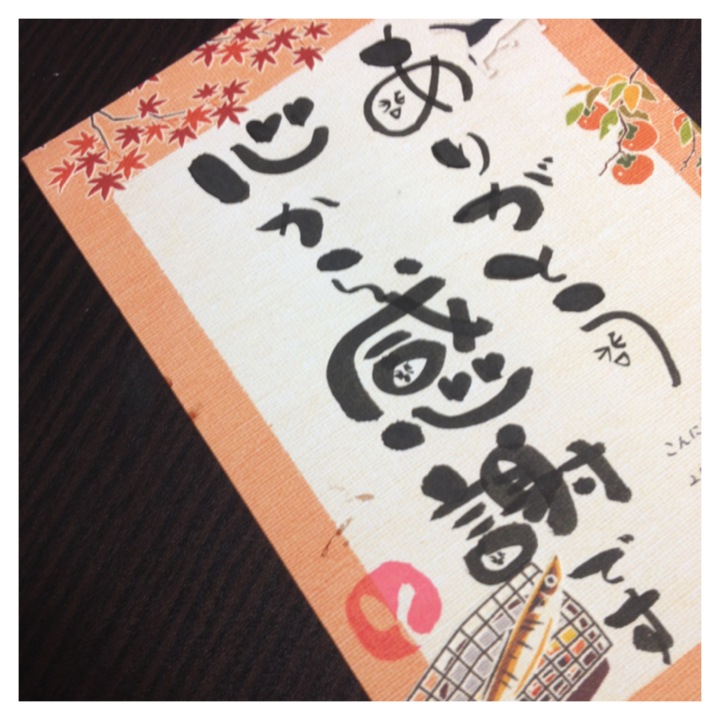 ありがとう
心から感謝です
こんに